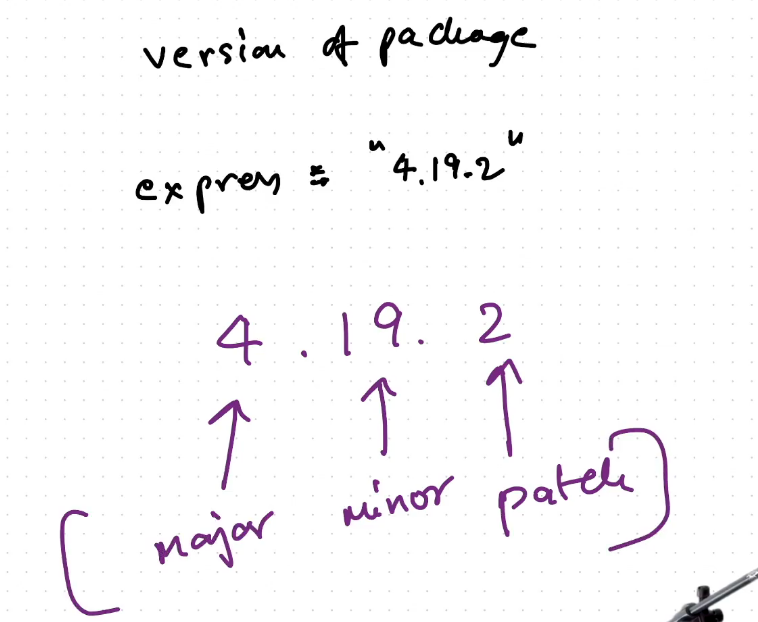 version of package
express = "4.19.2"
4.19.2
major minor patch